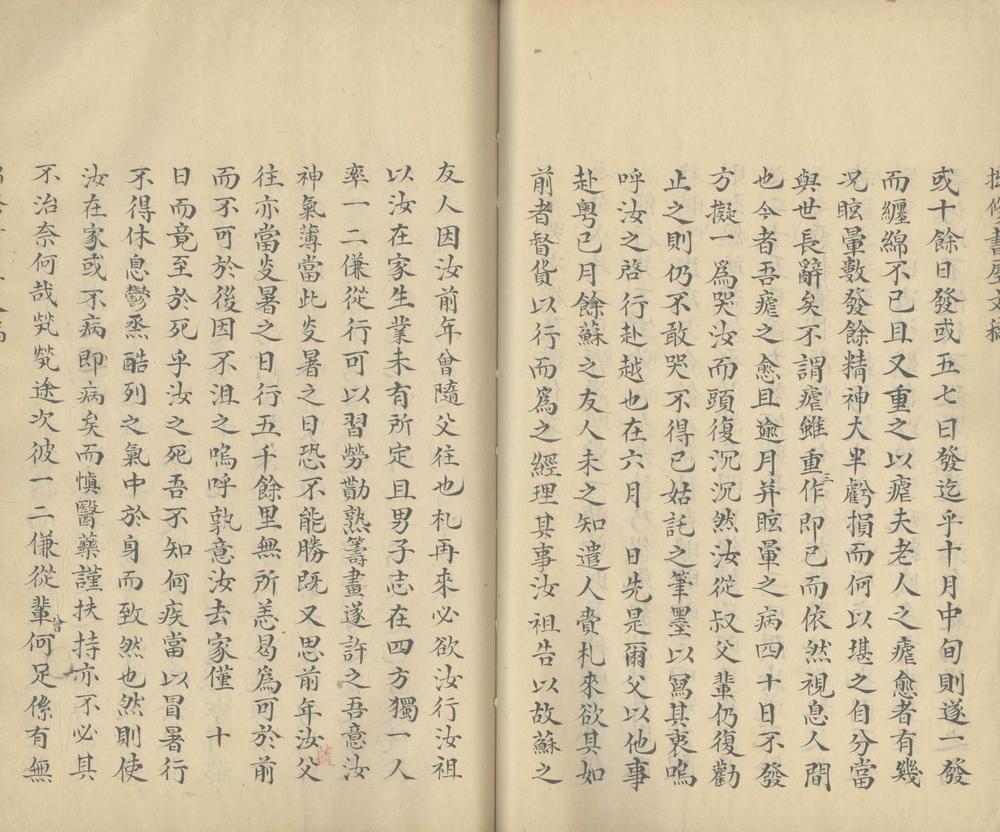 或十餘日發或五七日發迄乎十月中旬則遂一發
而纏綿不已且又重之以瘧夫老人之瘧愈者有幾
況眩暈數發餘精神大半虧損而何以堪之自分當
與世長辭矣不謂瘧雖重三作即已而依然視息人間
也今者吾瘧之愈且逾月并眩暈之病四十日不發
方擬一為哭汝而頭復沉沉然汝從叔父輩仍復勸
止之則仍不敢哭不得已姑託之筆墨以寫其衷嗚
呼汝之啓行赴越也在六月 日先是爾父以他事
赴粵已月餘蘇之友人未之知遣人賫札來欲其如
前者督貨以行而為之經理其事汝祖告以故蘇之
友人因汝前年曾隨父往也札再來必欲汝行汝祖
以汝在家生業未有所定且男子志在四方獨一人
率一二傔從行可以習勞勩熟籌畫遂許之吾意汝
神氣薄當此炎暑之日恐不能勝既又思前年汝隨父
往亦當炎暑之日行五千餘里無所恙曷為可於前
而不可於後因不沮之嗚呼孰意汝去家僅 十
日而竟至於死乎汝之死吾不知何疾當以冒暑行
不得休息鬱烝酷列之氣中於身而致然也然則使
汝在家或不病即病矣而慎醫藥謹扶持亦不必其
不治奈何哉煢煢途次彼一二傔從輩曾何足係有無